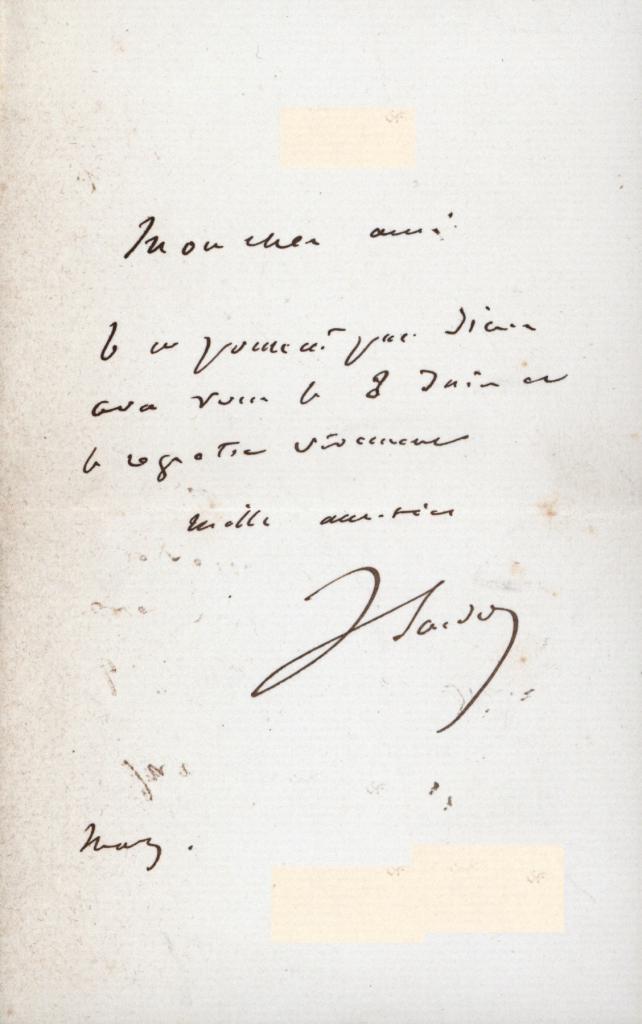 Mon cher ami
Je ne pourrai pas dîner
avec vous le 8 Juin et
le regrette vivement
Mille amitiés
V Sardou
Marly.